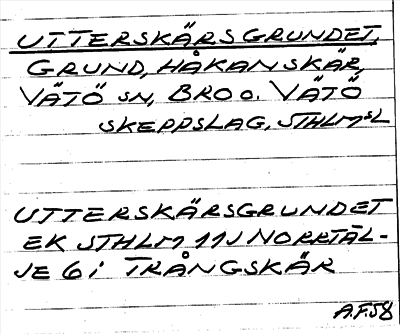 UTTERSKÄRSGRUNDET,
GRUND, HÅKANSKÄR,
VÄTÖ SN, BRO O. VÄTÖ
SKEPPSLAG, STHLMSL
UTTERSKÄRSGRUNDET
EK STHLM 11J NORRTÄL-
JE 6 i TRÅNGSKÄR
A.F.58